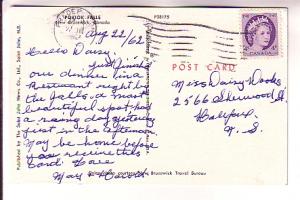 POKIOK FALLS
New Brunswick, Canada
P38175
Aug 22/62
Hello Daisy.
Just finished
our dinner in a
Restaurant right by
the Falls, a most
beautiful spot, had
a rainy day yesterday
first in the afternoon
May be home before
you receive this
Card. Love
May &
POST CARD
CANADA
Miss Daisy Hooks
2566 Sherwood St
Halifax
N.S.
Published by The Book Room News Co., Ltd., Saint John, N.B.
courtesy New Brunswick Travel Bureau